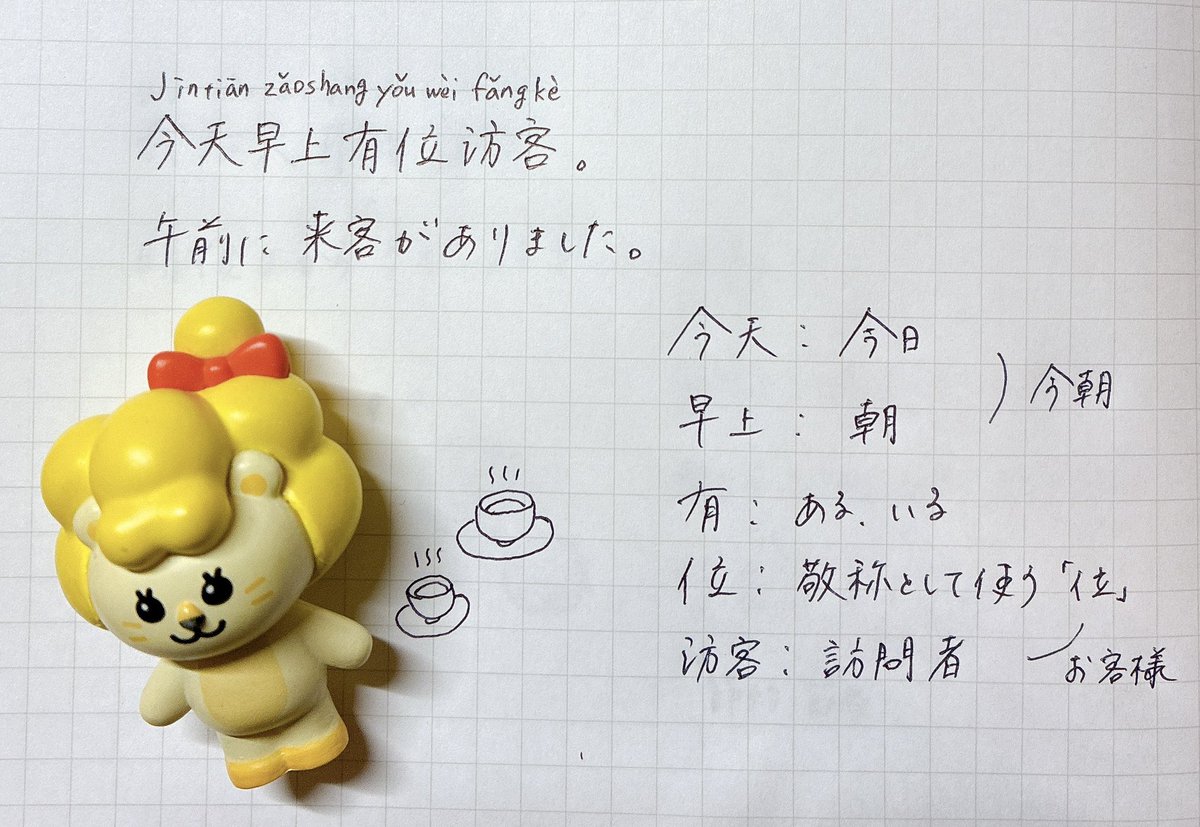 Jīntiān zǎoshang yǒu wèi fǎngkè
今天早上有位访客。
午前に来客がありました。
今天：今日
早上：朝
）今朝
有：ある、いる
位：敬称として使う「位」
访客：訪問者
お客様